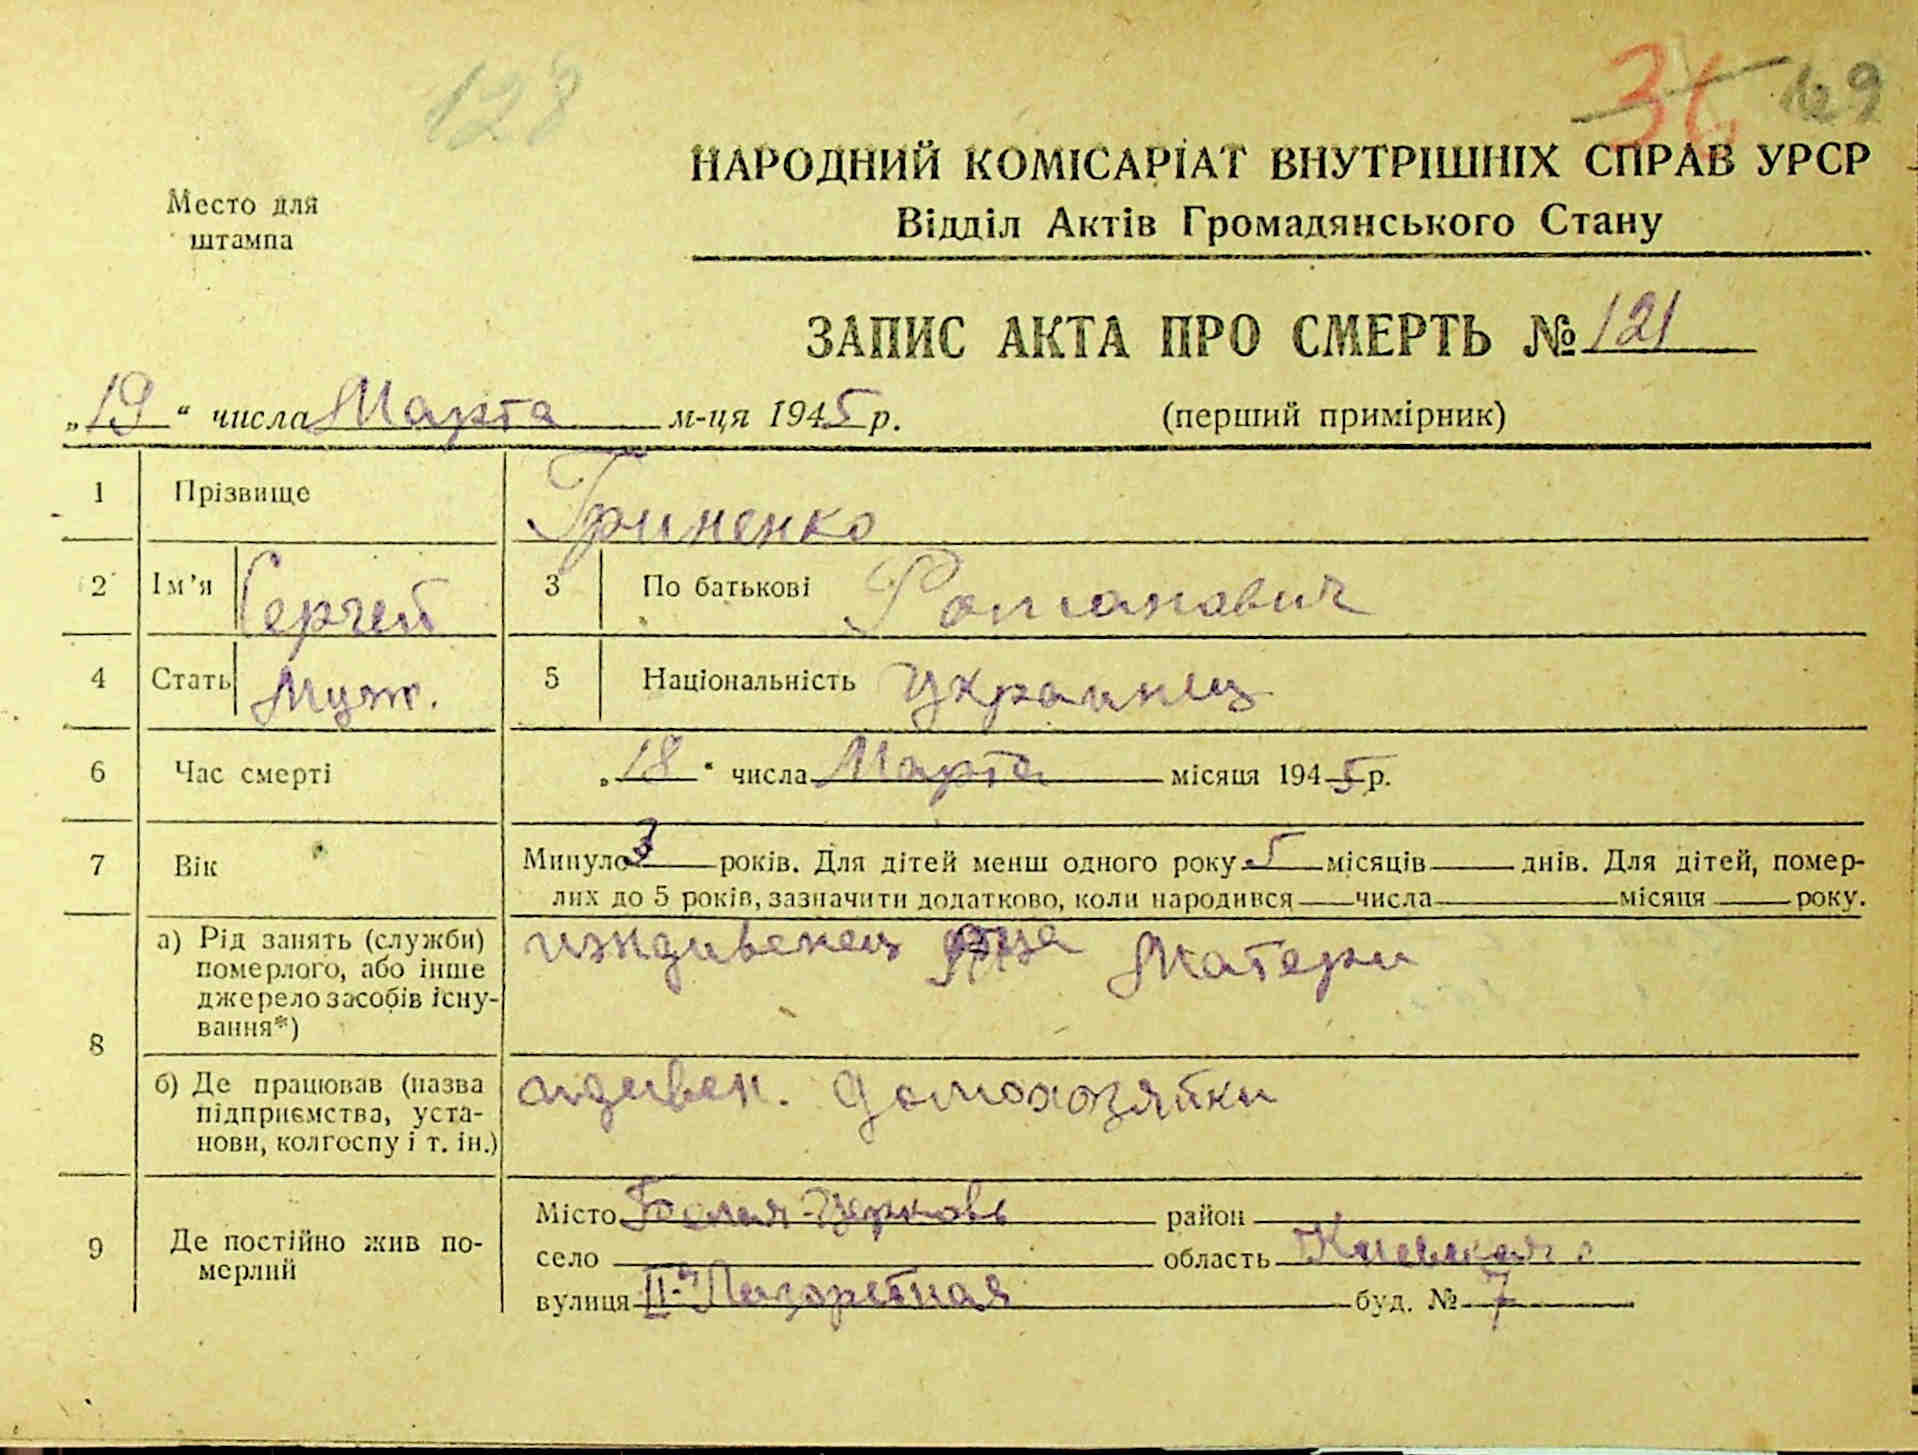 128
36 169
НАРОДНИЙ КОМІСАРІАТ ВНУТРІШНІХ СПРАВ УРСР
Место для
штампа
Відділ Актів Громадянського Стану
ЗАПИС АКТА ПРО СМЕРТЬ № 121
„19“ числа Марта м-ця 1945 р.
(перший примірник)
1 Прізвище Гриненко
2 Ім’я Сергей 3 По батькові Романович
4 Стать Муж. 5 Національність Украинец
6 Час смерті „18“ числа Марта місяця 1945 р.
7 Вік Минуло 3 років. Для дітей менш одного року 5 місяців днів. Для дітей, помер-
лих до 5 років, зазначити додатково, коли народився числа місяця року.
8 а) Рід занять (служби)
померлого, або інше
джерело засобів існу-
вання*)
иждивенец Матери
б) Де працював (назва
підприємства, уста-
нови, колгоспу і т. ін.)
домохозяйки
9 Де постійно жив по-
мерлий
Місто Белая-Церковь район
село область Киевская
вулиця II-я Лазаретная буд. № 7